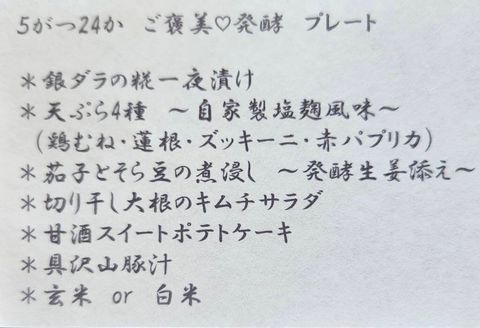 5がつ24か ご褒美♡発酵 プレート
＊銀ダラの糀一夜漬け
＊天ぷら4種 ～自家製塩麹風味～
（鶏むね・蓮根・ズッキーニ・赤パプリカ）
＊茄子とそら豆の煮浸し ～発酵生姜添え～
＊切り干し大根のキムチサラダ
＊甘酒スイートポテトケーキ
＊具沢山豚汁
＊玄米 or 白米